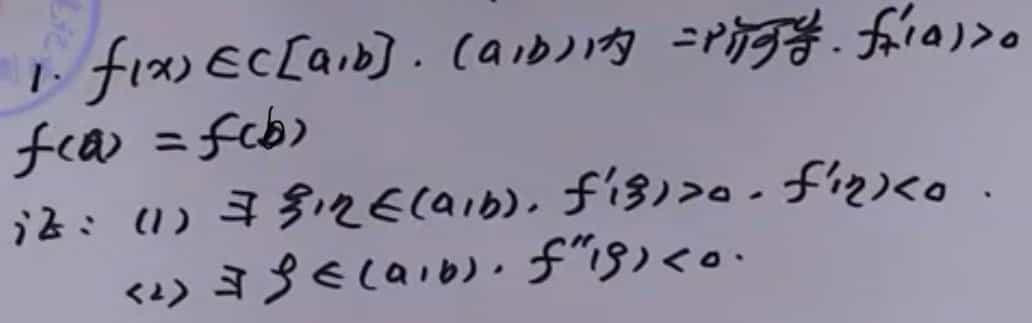 1. f(x)∈C[a,b]. (a,b)内 二阶可导. f₊'(a)>0
f(a) = f(b)
证: (1) ∃ ξ,η∈(a,b), f'(ξ)>0, f'(η)<0.
<2> ∃ ξ∈(a,b), f''(ξ)<0.